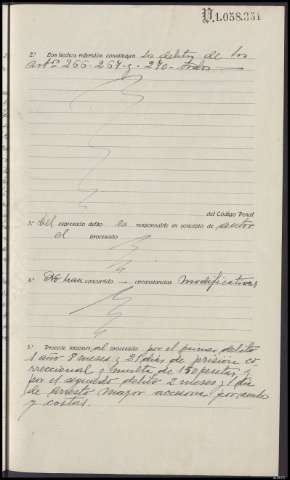 V.1.058.351
2.º Los hechos referidos constituyen los delitos de los
artos 266 - 267 y 270 - todos
del Código Penal
3.º Del expresado delito es responsable en concepto de autor
el procesado
4.º No han concurrido circunstancias modificativas
5.º Procede imponer al procesado por el primer delito
1 año 8 meses y 21 días de prisión co-
rreccional y multa de 150 pesetas, y
por el segundo delito 2 meses y 1 día
de arresto mayor accesorias
y costas.